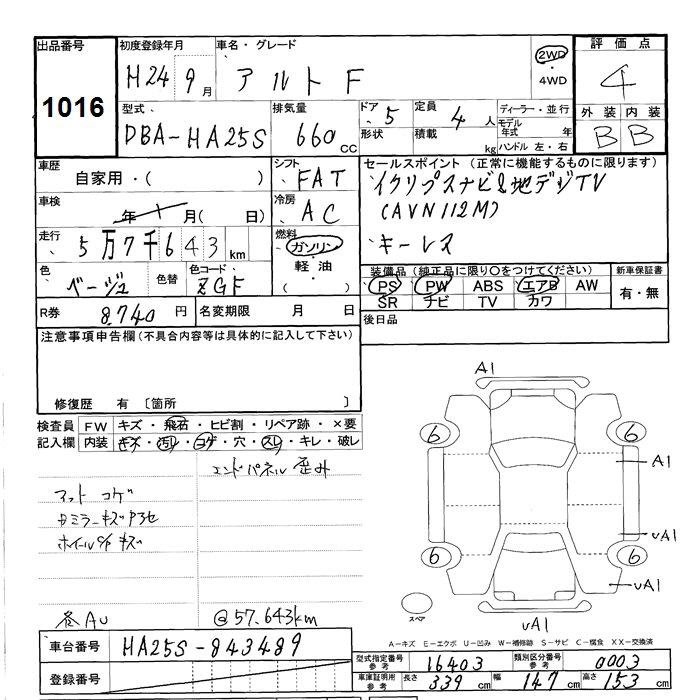 出品番号 初度登録年月 車名・グレード 2WD 評価点
1016 H24 9月 アルト F ・4WD 4
型式. 排気量 ドア 5 定員 4人 ディーラー・並行 外装 内装
DBA-HA25S 660cc 形状 積載 kg モデル年式 年 B B
ハンドル 左・右
車歴 自家用・( ) シフト FAT セールスポイント(正常に機能するものに限ります)
車検 年 月( 日) 冷房 AC
(AVN112M)
走行 5万7千643km 燃料 ガソリン・軽油・( ) キーレス
色 ベージュ 色替 色コード ZGF 装備品(純正品に限り○をつけてください) 新車保証書
PS PW ABS エアB AW 有・無
SR ナビ TV カワ
R券 8,740円 名変期限 月 日 後日品
注意事項申告欄(不具合内容等は具体的に記入して下さい)
修復歴 有 [箇所 ]
検査員記入欄 FW キズ・飛石・ヒビ割・リペア跡・×要
内装 キズ・汚レ・コゲ・穴・スレ・キレ・破レ
エンドパネル歪み
マット コゲ
各AU @57.643km
A1
6 6
A1
uA1
6 6
uA1
uA1
スペア
A-キズ E-エクボ U-凹み W-補修跡 S-サビ C-腐食 XX-交換済
車台番号 HA25S-843489
登録番号
型式指定番号 参考 16403 類別区分番号 参考 0003
車庫証明用 参考 長さ 339cm 幅 147cm 高さ 153cm